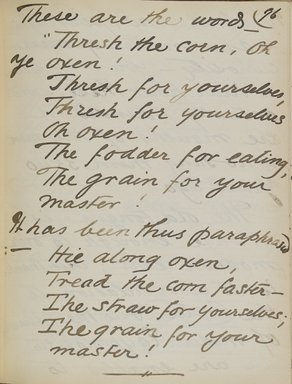 These are the words — (96
"Thresh the corn, oh
ye oxen!
Thresh for yourselves,
Thresh for yourselves
Oh oxen!
The fodder for eating,
The grain for your
master!
It has been thus paraphrased
— Hie along oxen,
Tread the corn faster —
The straw for yourselves,
The grain for your
master!